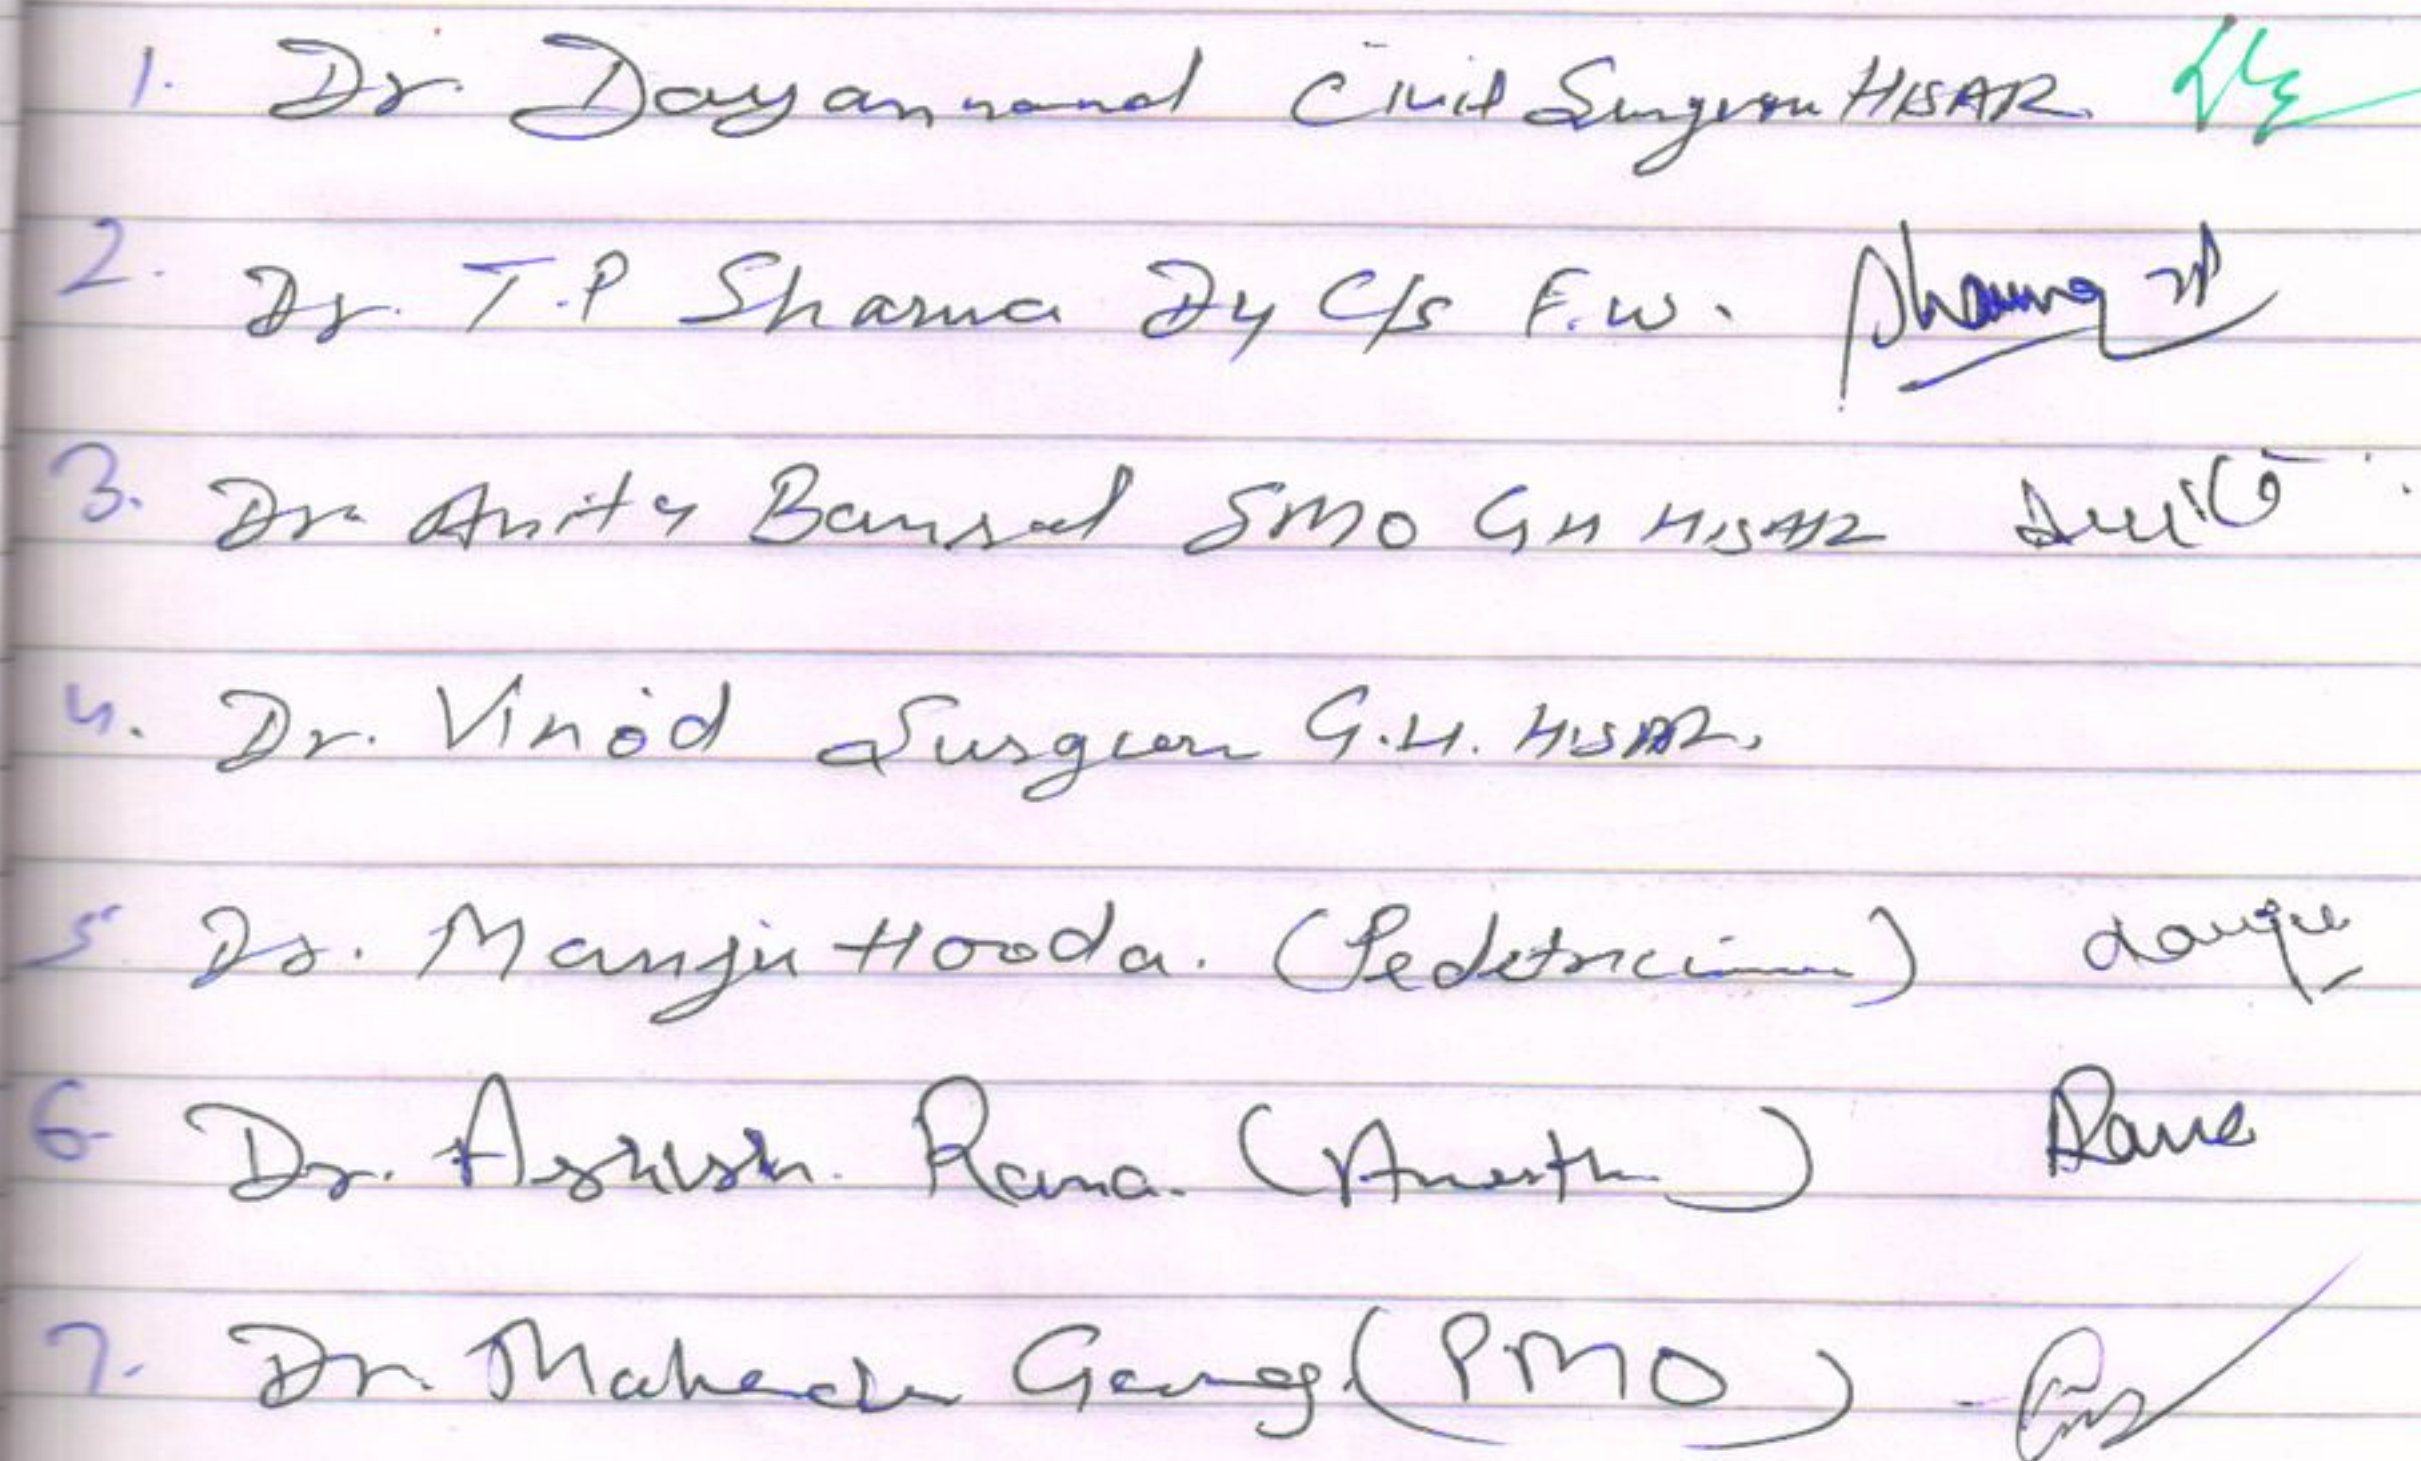 1. Dr. Dayannand Civil Surgeon HISAR
2. Dr. T.P Sharma Dy C/s F.W. Sharma
3. Dr. Anita Bansal SMO GH HISAR
4. Dr. Vinod Surgeon G.H. HISAR.
5. Dr. Manju Hooda. (Pedetrician)
6. Dr. Ashish. Rana. (Anesth) Rana
7. Dr. Mahender Garg (PMO)